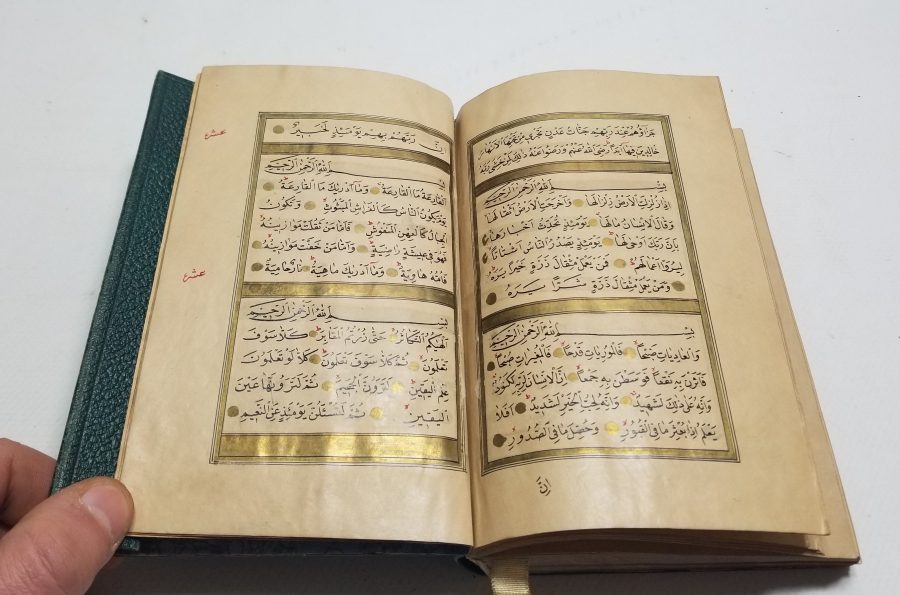 جَزَاؤُهُمْ عِنْدَ رَبِّهِمْ جَنَّاتُ عَدْنٍ تَجْرِي مِنْ تَحْتِهَا الْاَنْهَارُ
خَالِدِينَ فِيهَا اَبَدًا رَضِيَ اللّٰهُ عَنْهُمْ وَرَضُوا عَنْهُ ذٰلِكَ لِمَنْ خَشِيَ رَبَّهُ
بِسْمِ اللّٰهِ الرَّحْمٰنِ الرَّحِيمِ
اِذَا زُلْزِلَتِ الْاَرْضُ زِلْزَالَهَا وَاَخْرَجَتِ الْاَرْضُ اَثْقَالَهَا
وَقَالَ الْاِنْسَانُ مَالَهَا يَوْمَئِذٍ تُحَدِّثُ اَخْبَارَهَا
بِاَنَّ رَبَّكَ اَوْحٰى لَهَا يَوْمَئِذٍ يَصْدُرُ النَّاسُ اَشْتَاتًا
لِيُرَوْا اَعْمَالَهُمْ فَمَنْ يَعْمَلْ مِثْقَالَ ذَرَّةٍ خَيْرًا يَرَهُ
وَمَنْ يَعْمَلْ مِثْقَالَ ذَرَّةٍ شَرًّا يَرَهُ
بِسْمِ اللّٰهِ الرَّحْمٰنِ الرَّحِيمِ
وَالْعَادِيَاتِ ضَبْحًا فَالْمُورِيَاتِ قَدْحًا فَالْمُغِيرَاتِ صُبْحًا
فَاَثَرْنَ بِهِ نَقْعًا فَوَسَطْنَ بِهِ جَمْعًا اِنَّ الْاِنْسَانَ لِرَبِّهِ لَكَنُودٌ
وَاِنَّهُ عَلٰى ذٰلِكَ لَشَهِيدٌ وَاِنَّهُ لِحُبِّ الْخَيْرِ لَشَدِيدٌ اَفَلَا
يَعْلَمُ اِذَا بُعْثِرَ مَا فِي الْقُبُورِ وَحُصِّلَ مَا فِي الصُّدُورِ
اِنَّ
اِنَّ رَبَّهُمْ بِهِمْ يَوْمَئِذٍ لَخَبِيرٌ
عشر
بِسْمِ اللّٰهِ الرَّحْمٰنِ الرَّحِيمِ
اَلْقَارِعَةُ مَا الْقَارِعَةُ وَمَا اَدْرٰيكَ مَا الْقَارِعَةُ
يَوْمَ يَكُونُ النَّاسُ كَالْفَرَاشِ الْمَبْثُوثِ وَتَكُونُ
الْجِبَالُ كَالْعِهْنِ الْمَنْفُوشِ فَاَمَّا مَنْ ثَقُلَتْ مَوَازِينُهُ
فَهُوَ فِي عِيشَةٍ رَاضِيَةٍ وَاَمَّا مَنْ خَفَّتْ مَوَازِينُهُ
فَاُمُّهُ هَاوِيَةٌ وَمَا اَدْرٰيكَ مَاهِيَهْ نَارٌ حَامِيَةٌ
عشر
بِسْمِ اللّٰهِ الرَّحْمٰنِ الرَّحِيمِ
اَلْهٰيكُمُ التَّكَاثُرُ حَتّٰى زُرْتُمُ الْمَقَابِرَ كَلَّا سَوْفَ
تَعْلَمُونَ ثُمَّ كَلَّا سَوْفَ تَعْلَمُونَ كَلَّا لَوْ تَعْلَمُونَ
عِلْمَ الْيَقِينِ لَتَرَوُنَّ الْجَحِيمَ ثُمَّ لَتَرَوُنَّهَا عَيْنَ
الْيَقِينِ ثُمَّ لَتُسْئَلُنَّ يَوْمَئِذٍ عَنِ النَّعِيمِ